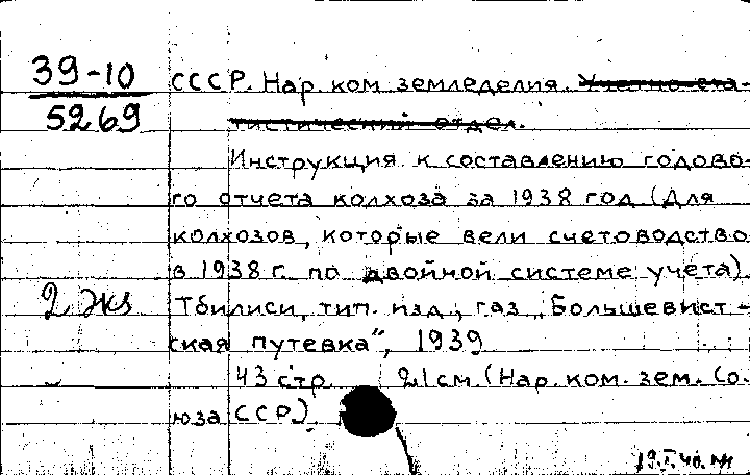 39-10
5269
СССР. Нар. ком. земледелия. Учетно-ста-
тистический отдел.
Инструкция к составлению годово-
го отчета колхоза за 1938 год (Для
колхозов, которые вели счетоводство
в 1938 г. по двойной системе учета).
2 экз
Тбилиси, тип. изд., газ „Большевист-
ская путевка", 1939
43 стр. 21 см. (Нар. ком. зем. Со-
юза ССР)